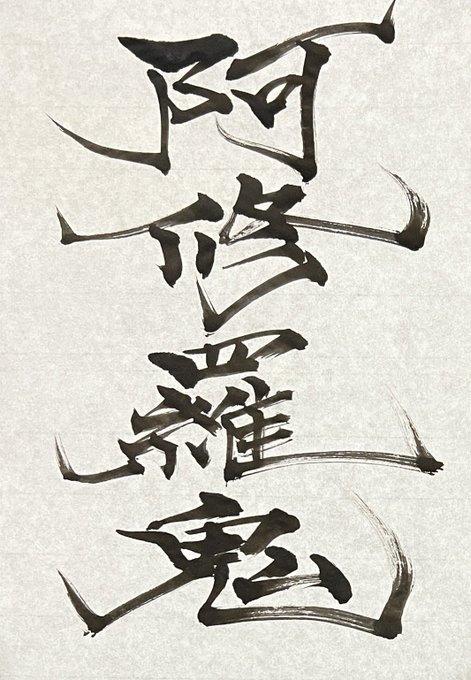 阿修羅鬼